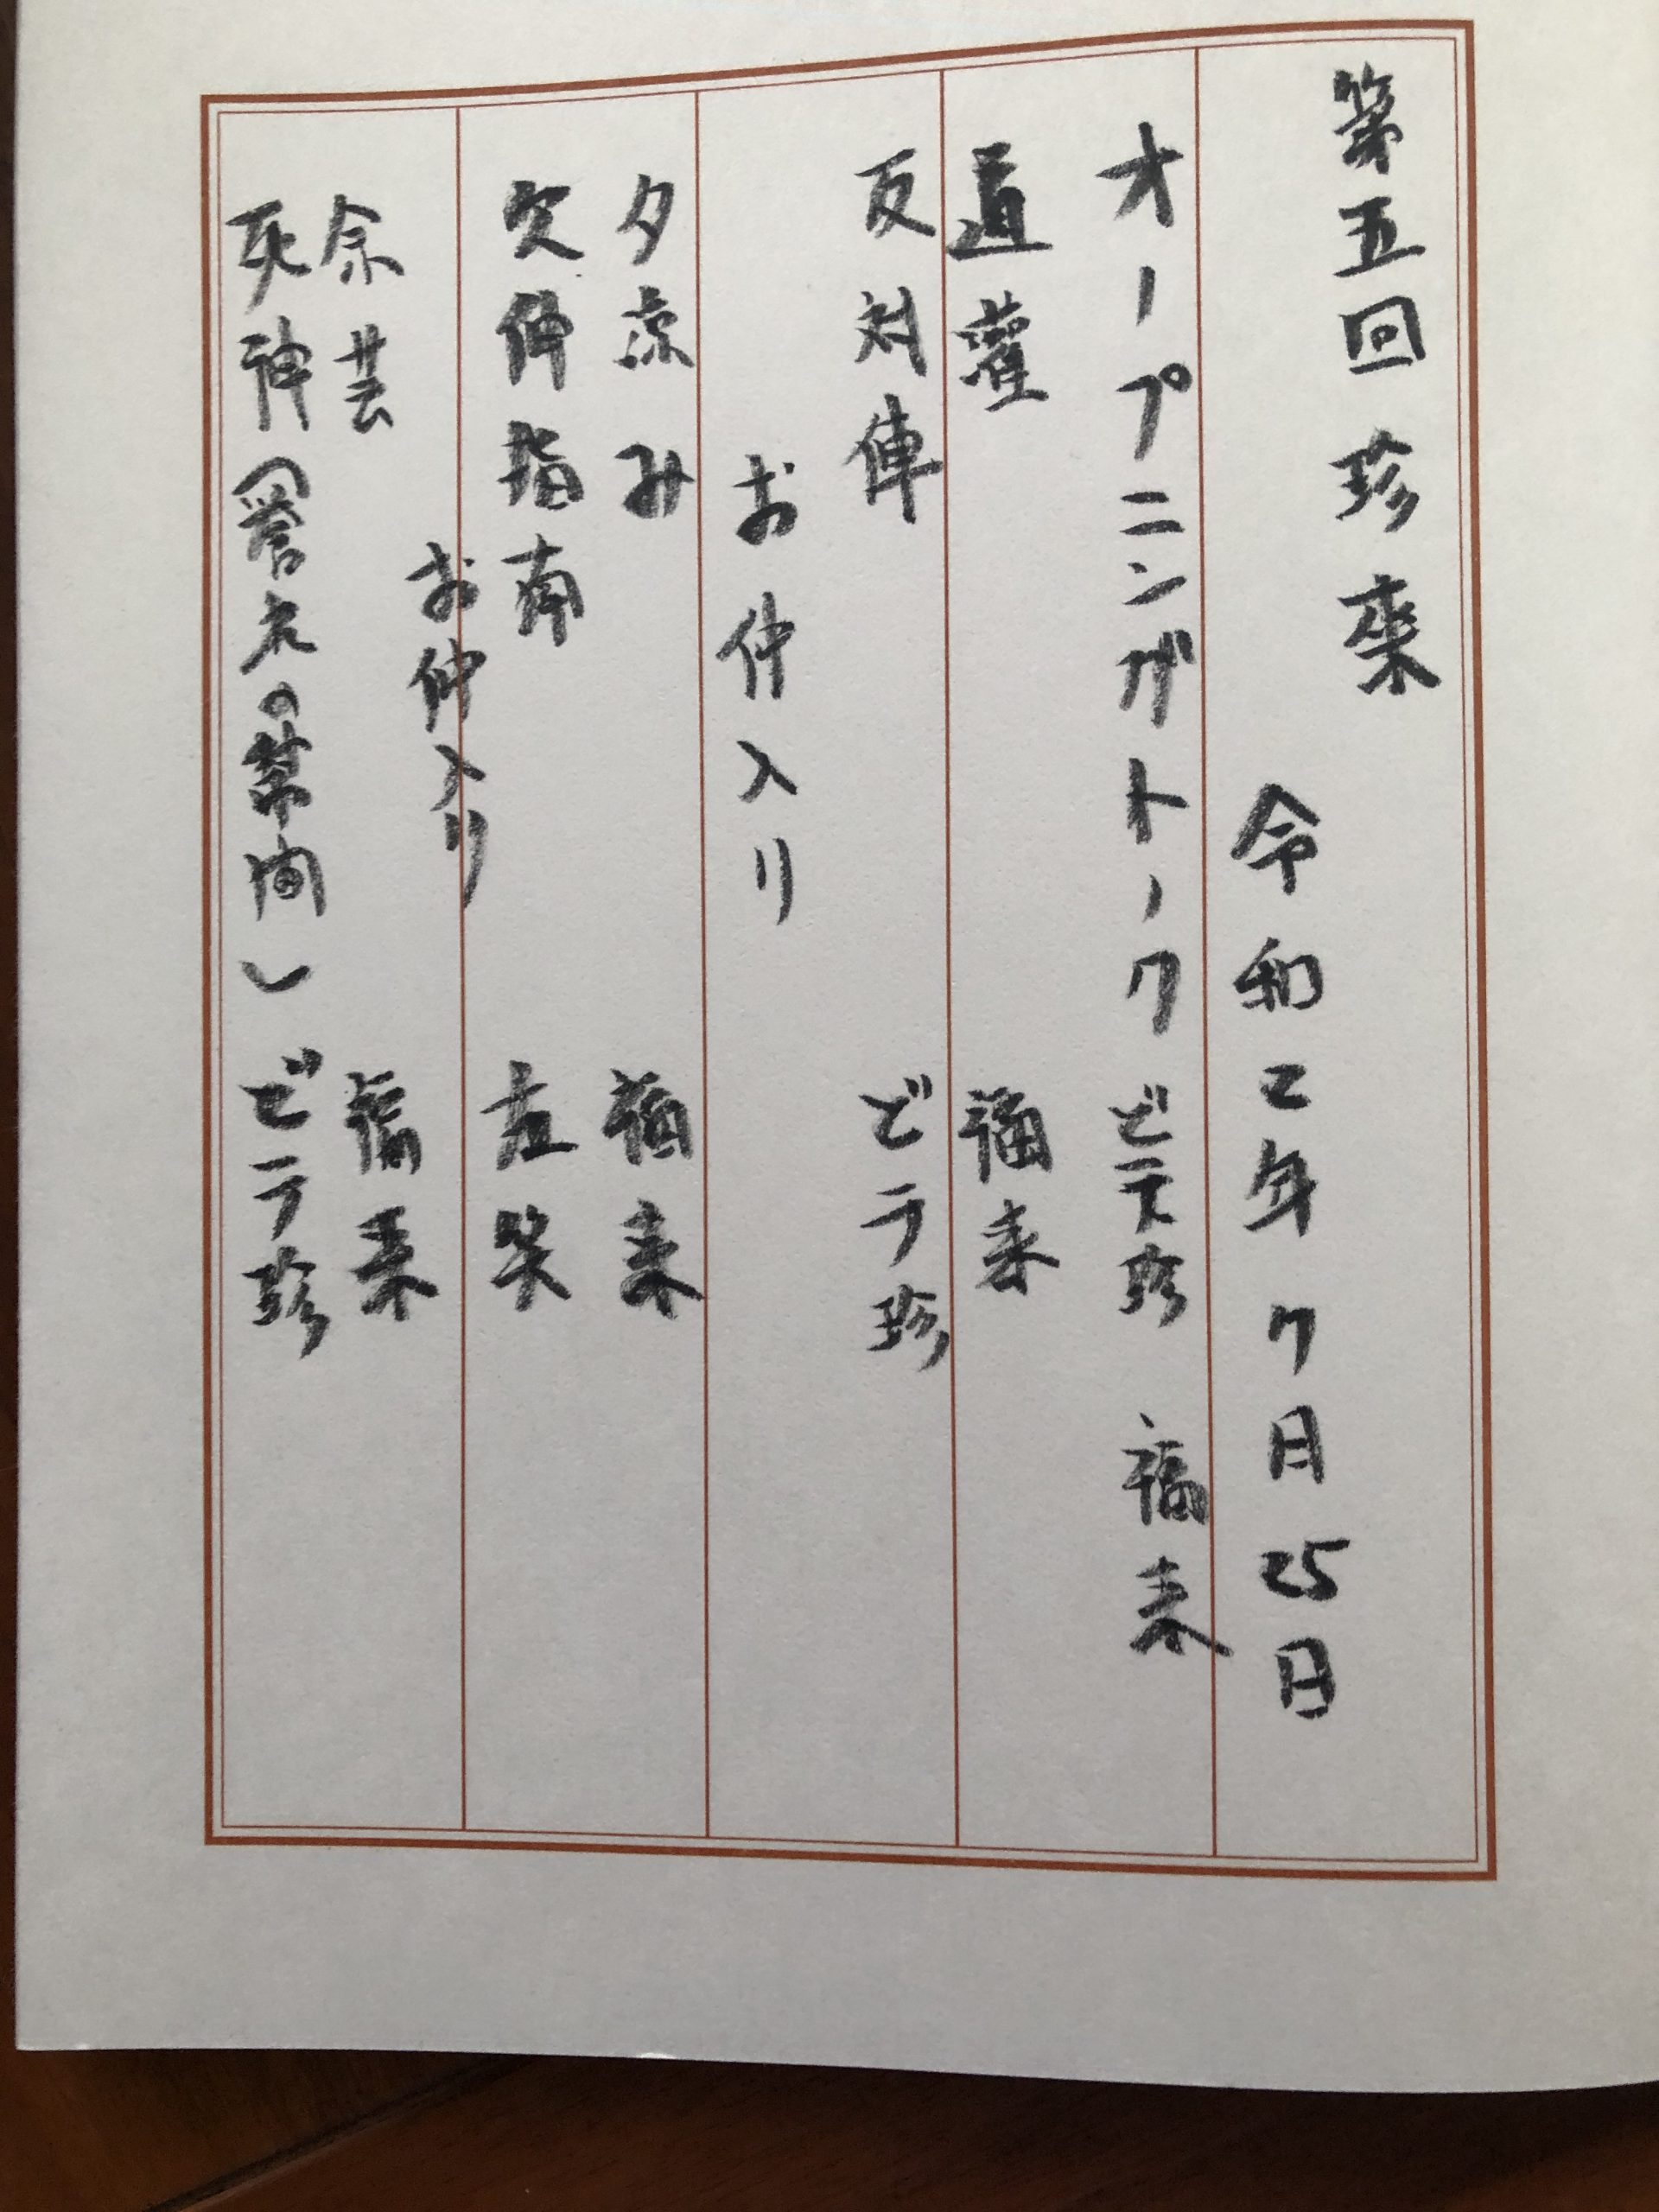 第五回 珍来
令和2年7月25日
オープニングトーク ビラ珍 福来
道灌 福来
反対俥 ビラ珍
お仲入り
夕涼み 福来
欠伸指南 左笑
お仲入り
余芸 福来
死神(誉れの幇間) ビラ珍